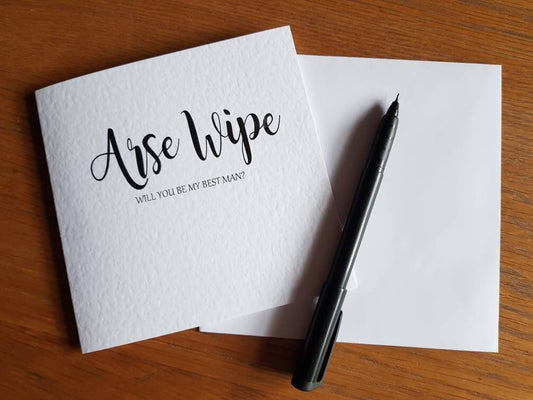 Arse Wipe
WILL YOU BE MY BEST MAN?